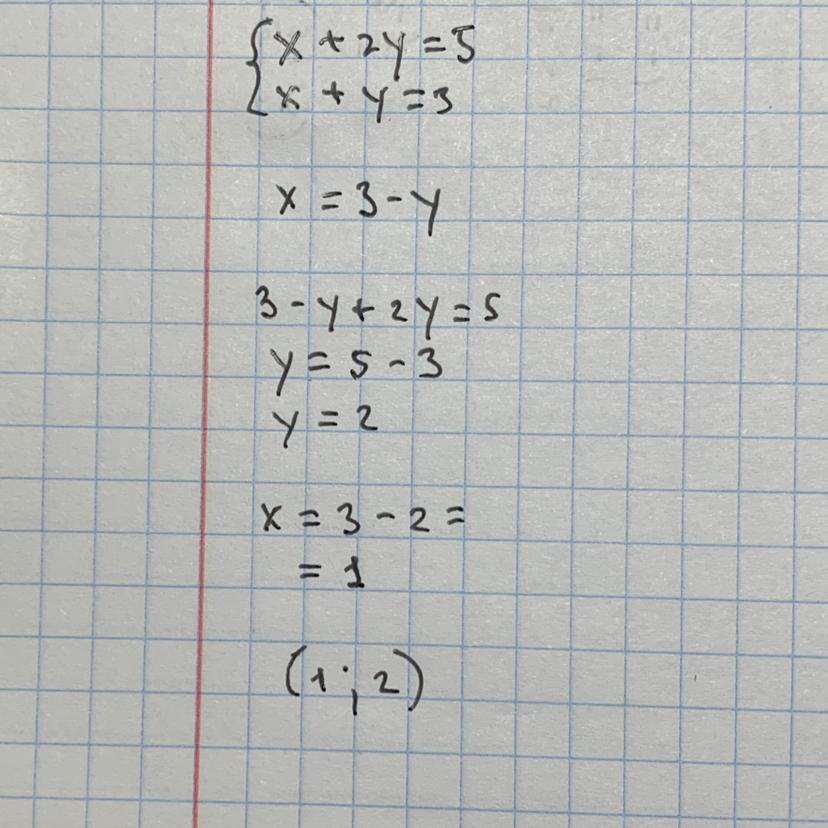 {x + 2y = 5
{x + y = 3
x = 3 - y
3 - y + 2y = 5
y = 5 - 3
y = 2
x = 3 - 2 =
= 1
(1; 2)